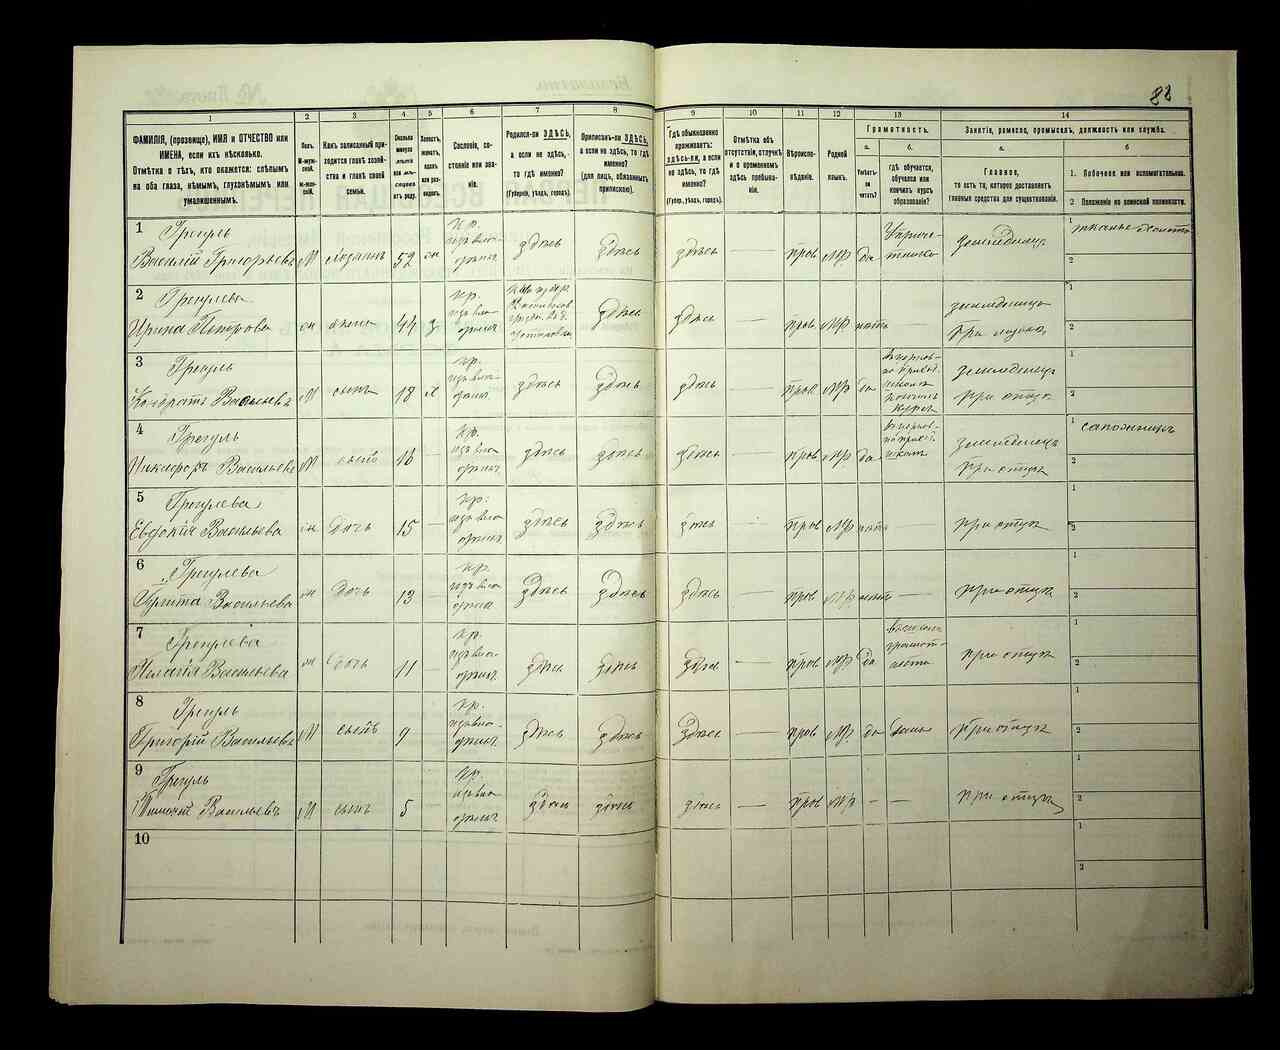 88
1 2 3 4 5 6 7 8 9 10 11 12 13 14
ФАМИЛІЯ, (прозвище), ИМЯ и ОТЧЕСТВО или
ИМЕНА, если ихъ нѣсколько.
Отмѣтка о тѣхъ, кто окажется: слѣпымъ
на оба глаза, нѣмымъ, глухонѣмымъ или
умалишеннымъ.
Полъ.
М-муж-
ской.
Ж-жен-
скій.
Какъ записанный при-
ходится главѣ хозяй-
ства и главѣ своей
семьи.
Сколько
минуло
лѣтъ
или мѣ-
сяцевъ
отъ роду.
Холостъ,
женатъ,
вдовъ
или раз-
веденъ.
Сословіе, со-
стояніе или зва-
ніе.
Родился-ли ЗДѢСЬ,
а если не здѣсь,
то гдѣ именно?
(Губернія, уѣздъ, городъ).
Приписанъ-ли ЗДѢСЬ,
а если не здѣсь, то гдѣ
именно?
(для лицъ, обязанныхъ
припискою).
Гдѣ обыкновенно
проживаетъ:
здѣсь-ли, а если
не здѣсь, то гдѣ
именно?
(Губер., уѣздъ, городъ).
Отмѣтка объ
отсутствіи, отлучкѣ
и о временномъ
здѣсь пребыва-
ніи.
Вѣроиспо-
вѣданіе.
Родной
языкъ.
Грамотность.
а.
Умѣетъ-
ли
читать?
б.
гдѣ обучается,
обучался или
кончилъ курсъ
образованія?
Занятіе, ремесло, промыселъ, должность или служба.
а.
Главное,
то есть то, которое доставляетъ
главныя средства для существованія.
б
1. Побочное или вспомогательное.
2 Положеніе по воинской повинности.
1
Грегуль
Василій Григорьевъ М хозяинъ 52 ж
кр.
изъ вла-
дѣльч.
здѣсь здѣсь здѣсь — прав МР да
земледѣлецъ
1
2
2
Грегулева
Ирина Петрова ж жена 44 з
кр.
изъ вла-
дѣльч.
здѣсь здѣсь — прав МР нѣтъ
земледѣлецъ
1
2
3
Грегуль
Кондратъ Васильевъ М сынъ 18 х
кр.
изъ вла-
дѣльч.
здѣсь здѣсь здѣсь — прав МР да
земледѣлецъ
при отцѣ
1
2
4
Грегуль
Никифоръ Васильевъ М сынъ 16 —
кр.
изъ вла-
дѣльч.
здѣсь здѣсь здѣсь — прав МР да
земледѣлецъ
при отцѣ
1 сапожникъ
2
5
Грегулева
Евдокія Васильева ж дочь 15 —
кр.
изъ вла-
дѣльч.
здѣсь здѣсь здѣсь — прав МР нѣтъ
при отцѣ
1
2
6
Грегулева
Васильева ж дочь 13 —
кр.
изъ вла-
дѣльч.
здѣсь здѣсь здѣсь — прав МР нѣтъ —
при отцѣ
1
2
7
Грегулева
Пелагія Васильева ж дочь 11 —
кр.
изъ вла-
дѣльч.
здѣсь здѣсь здѣсь — прав МР да
при отцѣ
1
2
8
Грегуль
Григорій Васильевъ М сынъ 9 —
кр.
изъ вла-
дѣльч.
здѣсь здѣсь здѣсь — прав МР. да
при отцѣ
1
2
9
Грегуль
Васильевъ М сынъ 5 —
кр.
изъ вла-
дѣльч.
здѣсь здѣсь здѣсь — прав МР — —
при отцѣ
1
2
10
1
2